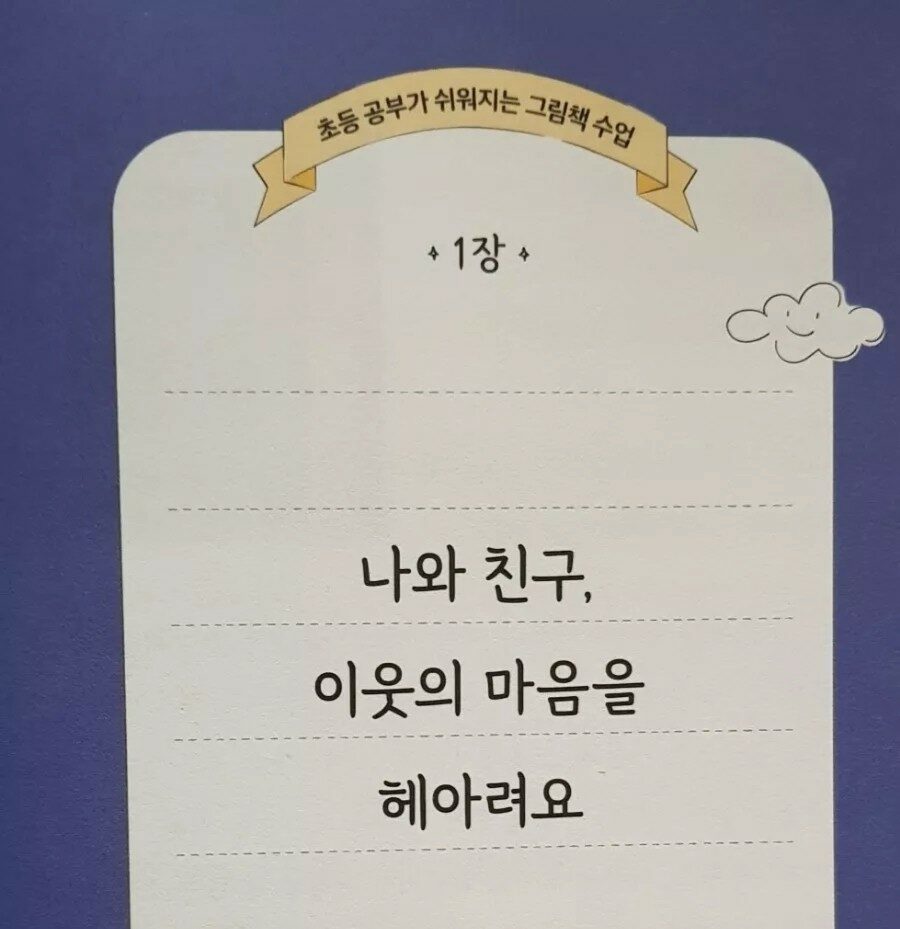 초등 공부가 쉬워지는 그림책 수업
1장
나와 친구,
이웃의 마음을
헤아려요